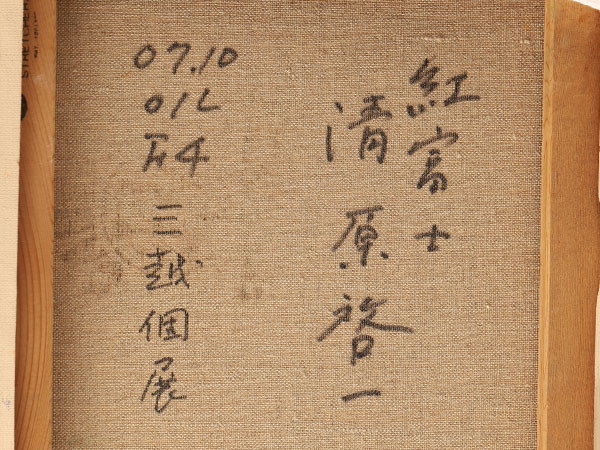 紅富士
清原啓一
07.10
OIL
F4
三越個展